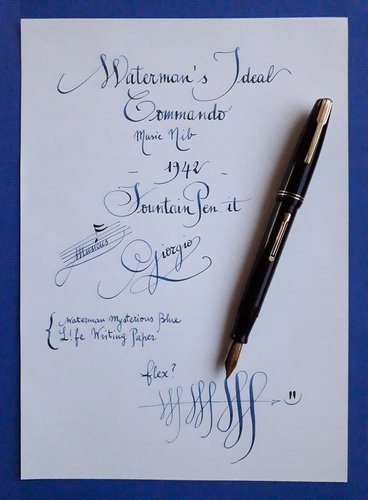 Waterman's Ideal
Commando
Music Nib
- 1942 -
FountainPen.it
Musicus
Giorgio
{ Waterman Mysterious Blue
L!fe Writing Paper
flex?